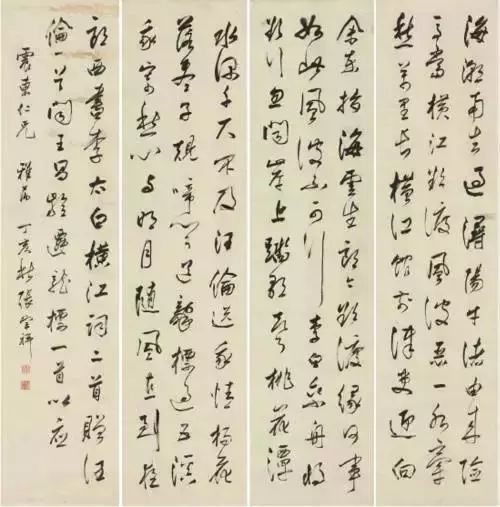 海潮南去過潯陽牛渚由來險
馬當橫江欲渡風波惡一水牽
愁萬里長橫江館前津吏迎向
余東指海雲生郎今欲渡緣何事
如此風波不可行李白乘舟將
欲行忽聞岸上踏歌聲桃花潭
水深千尺不及汪倫送我情楊花
落盡子規啼聞道龍標過五溪
我寄愁心與明月隨風直到夜
郎西書李太白橫江詞二首贈汪
倫一首聞王昌齡遷龍標一首以應
震東仁兄 雅屬 丁亥秋張宗祥